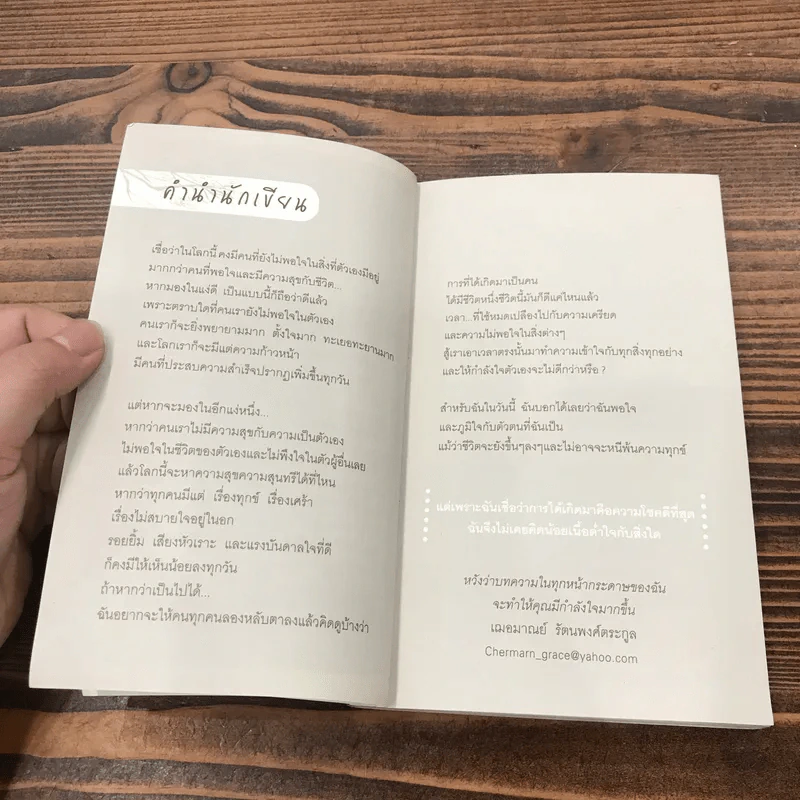 คำนำนักเขียน
เชื่อว่าในโลกนี้ คงมีคนที่ยังไม่พอใจในสิ่งที่ตัวเองมีอยู่
มากกว่าคนที่พอใจและมีความสุขกับชีวิต...
หากมองในแง่ดี เป็นแบบนี้ก็ถือว่าดีแล้ว
เพราะตราบใดที่คนเรายังไม่พอใจในตัวเอง
คนเราก็จะยิ่งพยายามมาก ตั้งใจมาก ทะเยอทะยานมาก
และโลกเราก็จะมีแต่ความก้าวหน้า
มีคนที่ประสบความสำเร็จปรากฏเพิ่มขึ้นทุกวัน
แต่หากจะมองในอีกแง่หนึ่ง...
หากว่าคนเราไม่มีความสุขกับความเป็นตัวเอง
ไม่พอใจในชีวิตของตัวเองและไม่พึงใจในตัวผู้อื่นเลย
แล้วโลกนี้จะหาความสุขความสุนทรีได้ที่ไหน
หากว่าทุกคนมีแต่ เรื่องทุกข์ เรื่องเศร้า
เรื่องไม่สบายใจอยู่ในอก
รอยยิ้ม เสียงหัวเราะ และแรงบันดาลใจที่ดี
ก็คงมีให้เห็นน้อยลงทุกวัน
ถ้าหากว่าเป็นไปได้...
ฉันอยากจะให้คนทุกคนลองหลับตาลงแล้วคิดดูบ้างว่า
การที่ได้เกิดมาเป็นคน
ได้มีชีวิตหนึ่งชีวิตนี้มันก็ดีแค่ไหนแล้ว
เวลา...ที่ใช้หมดเปลืองไปกับความเครียด
และความไม่พอใจในสิ่งต่างๆ
สู้เราเอาเวลาตรงนั้นมาทำความเข้าใจกับทุกสิ่งทุกอย่าง
และให้กำลังใจตัวเองจะไม่ดีกว่าหรือ ?
สำหรับฉันในวันนี้ ฉันบอกได้เลยว่าฉันพอใจ
และภูมิใจกับตัวตนที่ฉันเป็น
แม้ว่าชีวิตจะยังขึ้นๆลงๆและไม่อาจจะหนีพ้นความทุกข์
แต่เพราะฉันเชื่อว่าการได้เกิดมาคือความโชคดีที่สุด
ฉันจึงไม่เคยคิดน้อยเนื้อต่ำใจกับสิ่งใด
หวังว่าบทความในทุกหน้ากระดาษของฉัน
จะทำให้คุณมีกำลังใจมากขึ้น
เฌอมาณย์ รัตนพงศ์ตระกูล
Chermarn_grace@yahoo.com